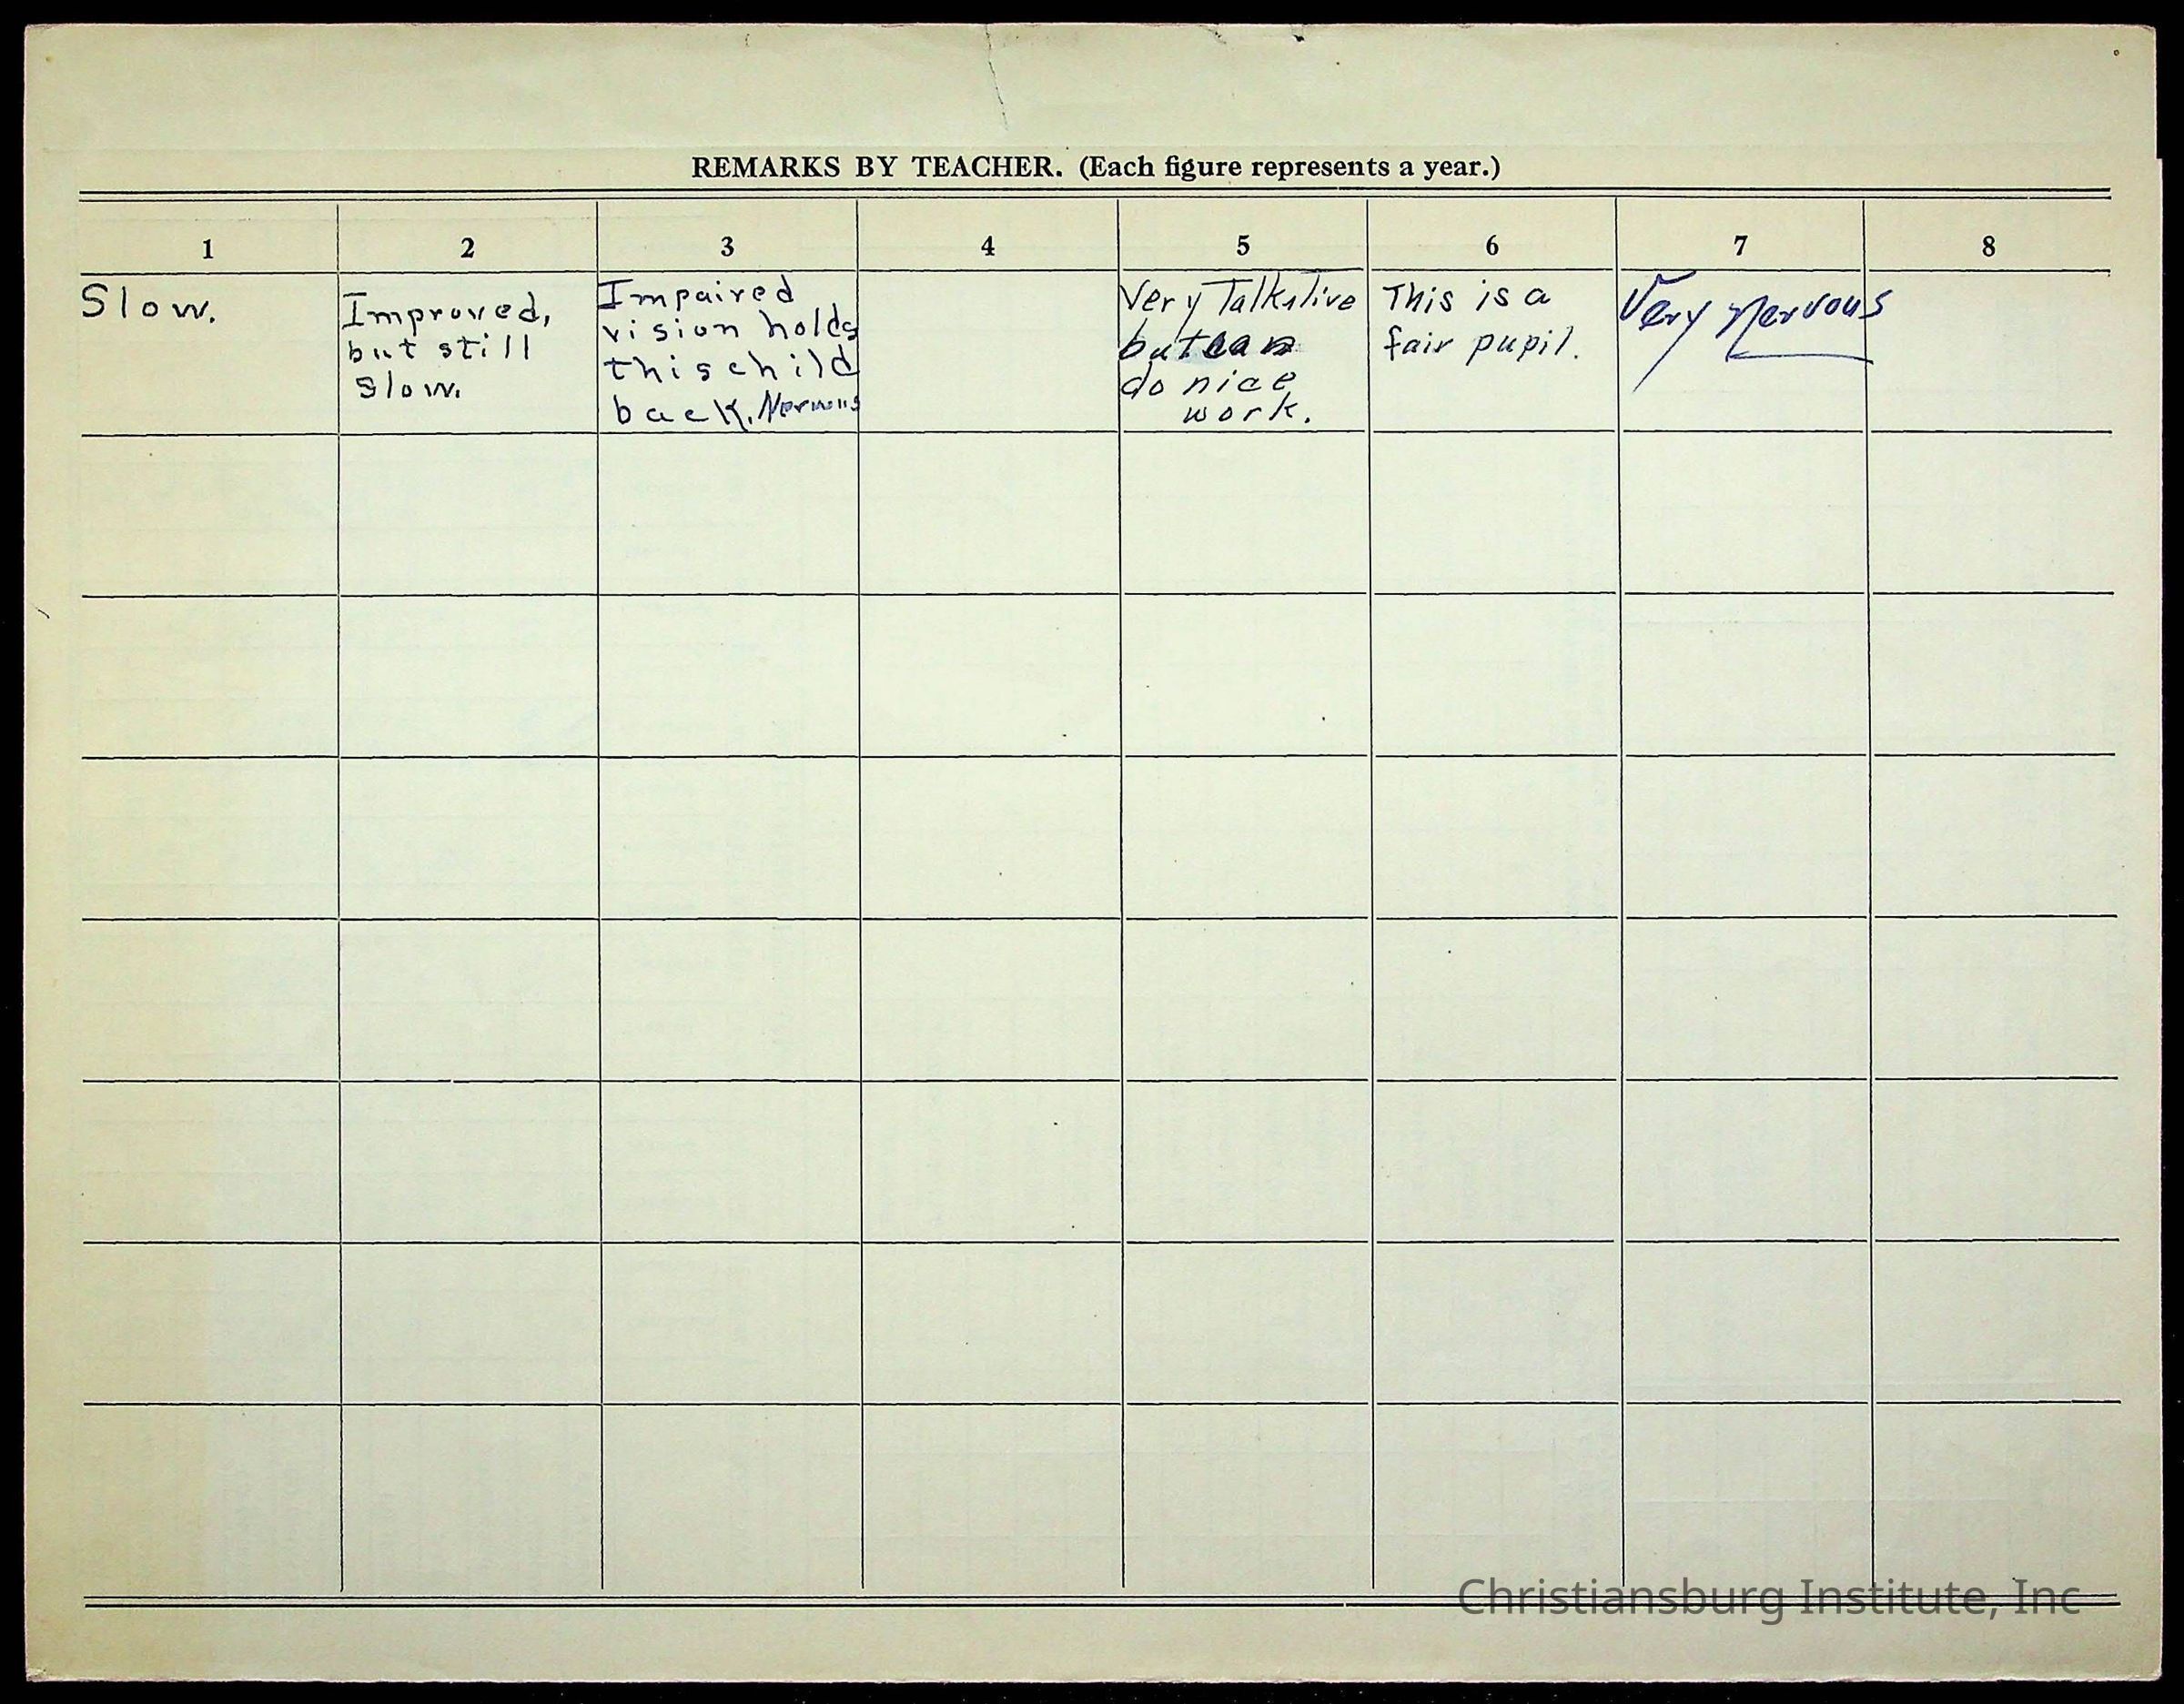 REMARKS BY TEACHER. (Each figure represents a year.)
1 2 3 4 5 6 7 8
Slow.
Improved,
but still
slow.
Impaired
vision holds
this child
back. Nervous
Very Talkative
but can
do nice
work.
This is a
fair pupil.
Very Nervous
Christiansburg Institute, Inc